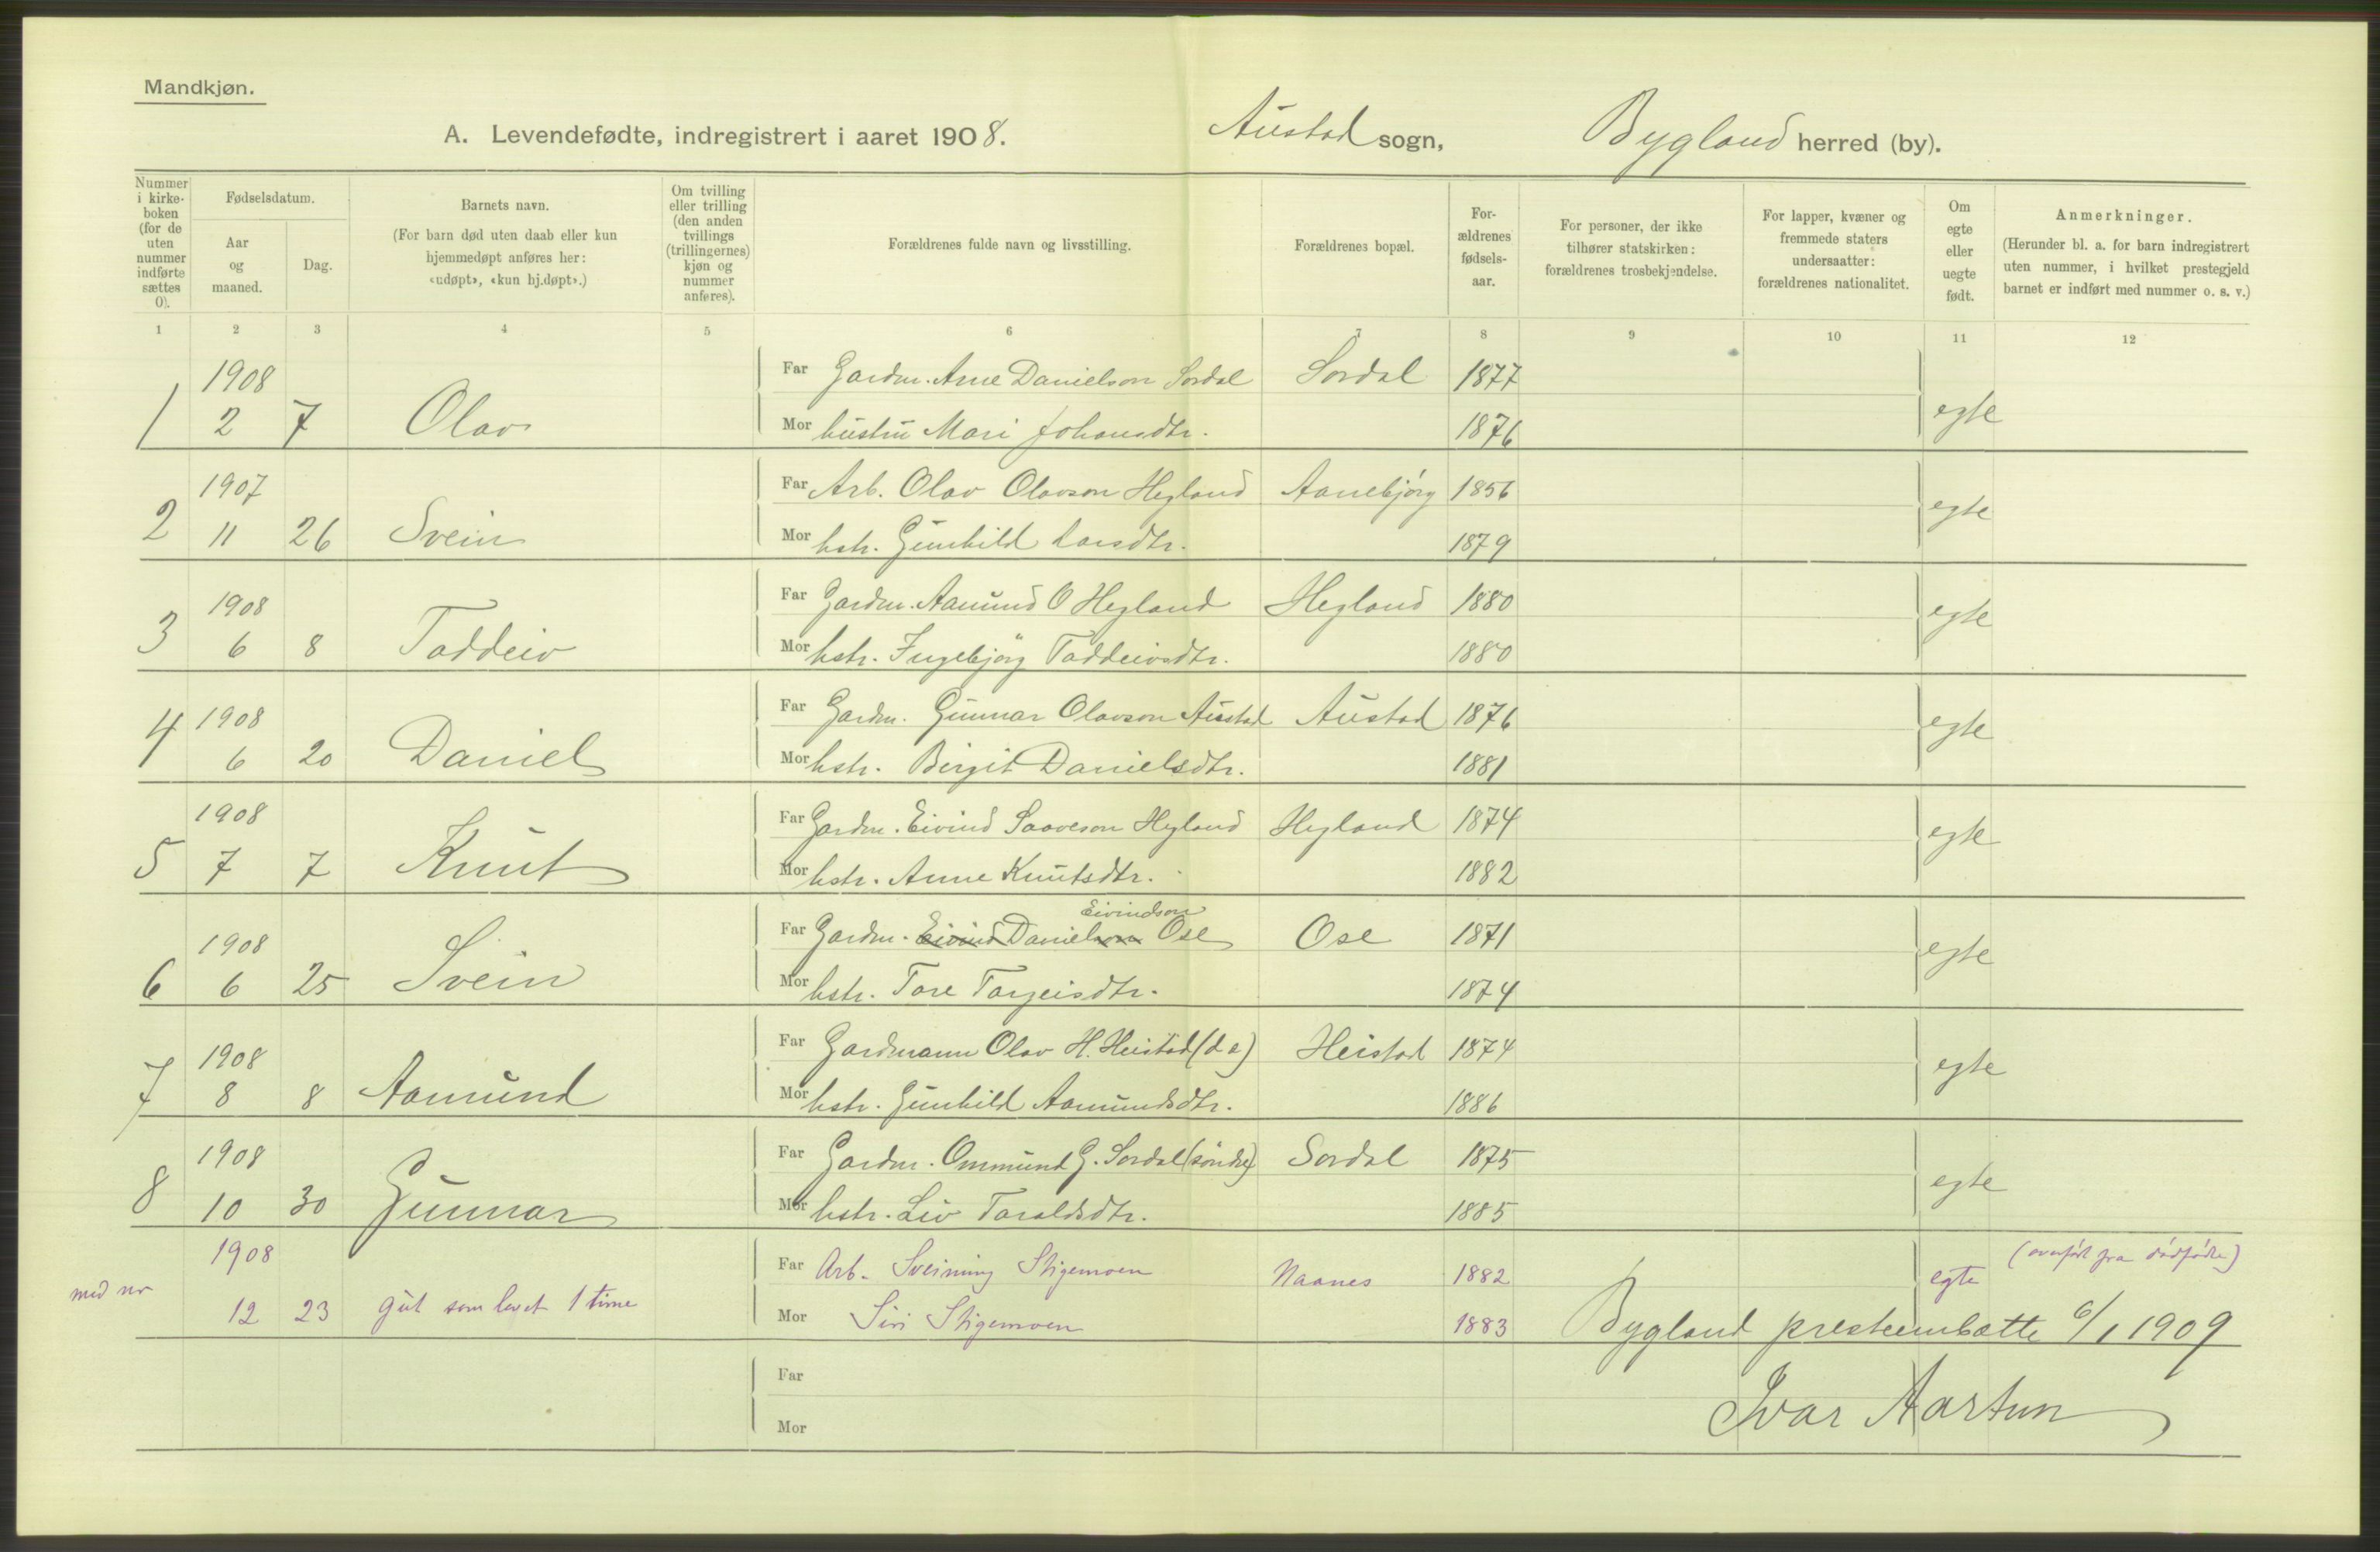 Mandkjøn.
A. Levendefødte, indregistrert i aaret 1908. Austad sogn, Bygland herred (by).
Nummer i kirkeboken (for de uten nummer indførte sættes 0).
Fødselsdatum.
Aar og maaned.
Dag.
Barnets navn.
(For barn død uten daab eller kun hjemmedøpt anføres her: «udøpt», «kun hj.døpt».)
Om tvilling eller trilling (den anden tvillings (trillingernes) kjøn og nummer anføres).
Forældrenes fulde navn og livsstilling.
Forældrenes bopæl.
Forældrenes fødselsaar.
For personer, der ikke tilhører statskirken: forældrenes trosbekjendelse.
For lapper, kvæner og fremmede staters undersaatter: forældrenes nationalitet.
Om egte eller uegte født.
Anmerkninger.
(Herunder bl. a. for barn indregistrert uten nummer, i hvilket prestegjeld barnet er indført med nummer o. s. v.)
1 2 3 4 5 6 7 8 9 10 11 12
1908 Far Gardm. Arne Danielson Sordal Sordal 1877
1 2 7 Olav Mor hustru Mari Johansdtr. 1876 egte
1907 Far Arb. Olav Olavson Hegland Aanebjórg 1856
2 11 26 Svein Mor hstr. Gunhild Larsdtr. 1879 egte
1908 Far Gardm. Aamund O Hegland Hegland 1880
3 6 8 Taddeiv Mor hstr. Ingebjörg Taddeivsdtr. 1880 egte
1908 Far Gardm. Gunnar Olavson Austad Austad 1876
4 6 20 Daniel Mor hstr. Birgit Danielsdtr. 1881 egte
1908 Far Gardm. Eivind Saaveson Hegland Hegland 1874
5 7 7 Knut Mor hstr. Anne Knutsdtr. 1882 egte
Eivindson
1908 Far Gardm. Eivind Danielson Ose Ose 1871
6 6 25 Svein Mor hstr. Tore Torgeisdtr. 1874 egte
1908 Far Gardmann Olav H. Heistad (d e) Heistad 1874
7 8 8 Aamund Mor hstr. Gunhild Aamundsdtr. 1886 egte
1908 Far Gardm. Ommund G. Sordal (söndre) Sordal 1875
8 10 30 Gunnar Mor hstr. Liv Taraldsdtr. 1885 egte
1908 Far Arb. Sveinung Stigemoen Naanes 1882 egte (overfört fra dödfödte)
med nr 12 23 gut som levet 1 time Mor Siri Stigemoen 1883 Bygland presteembætte 6/1 1909
Far
Ivar Aartun
Mor